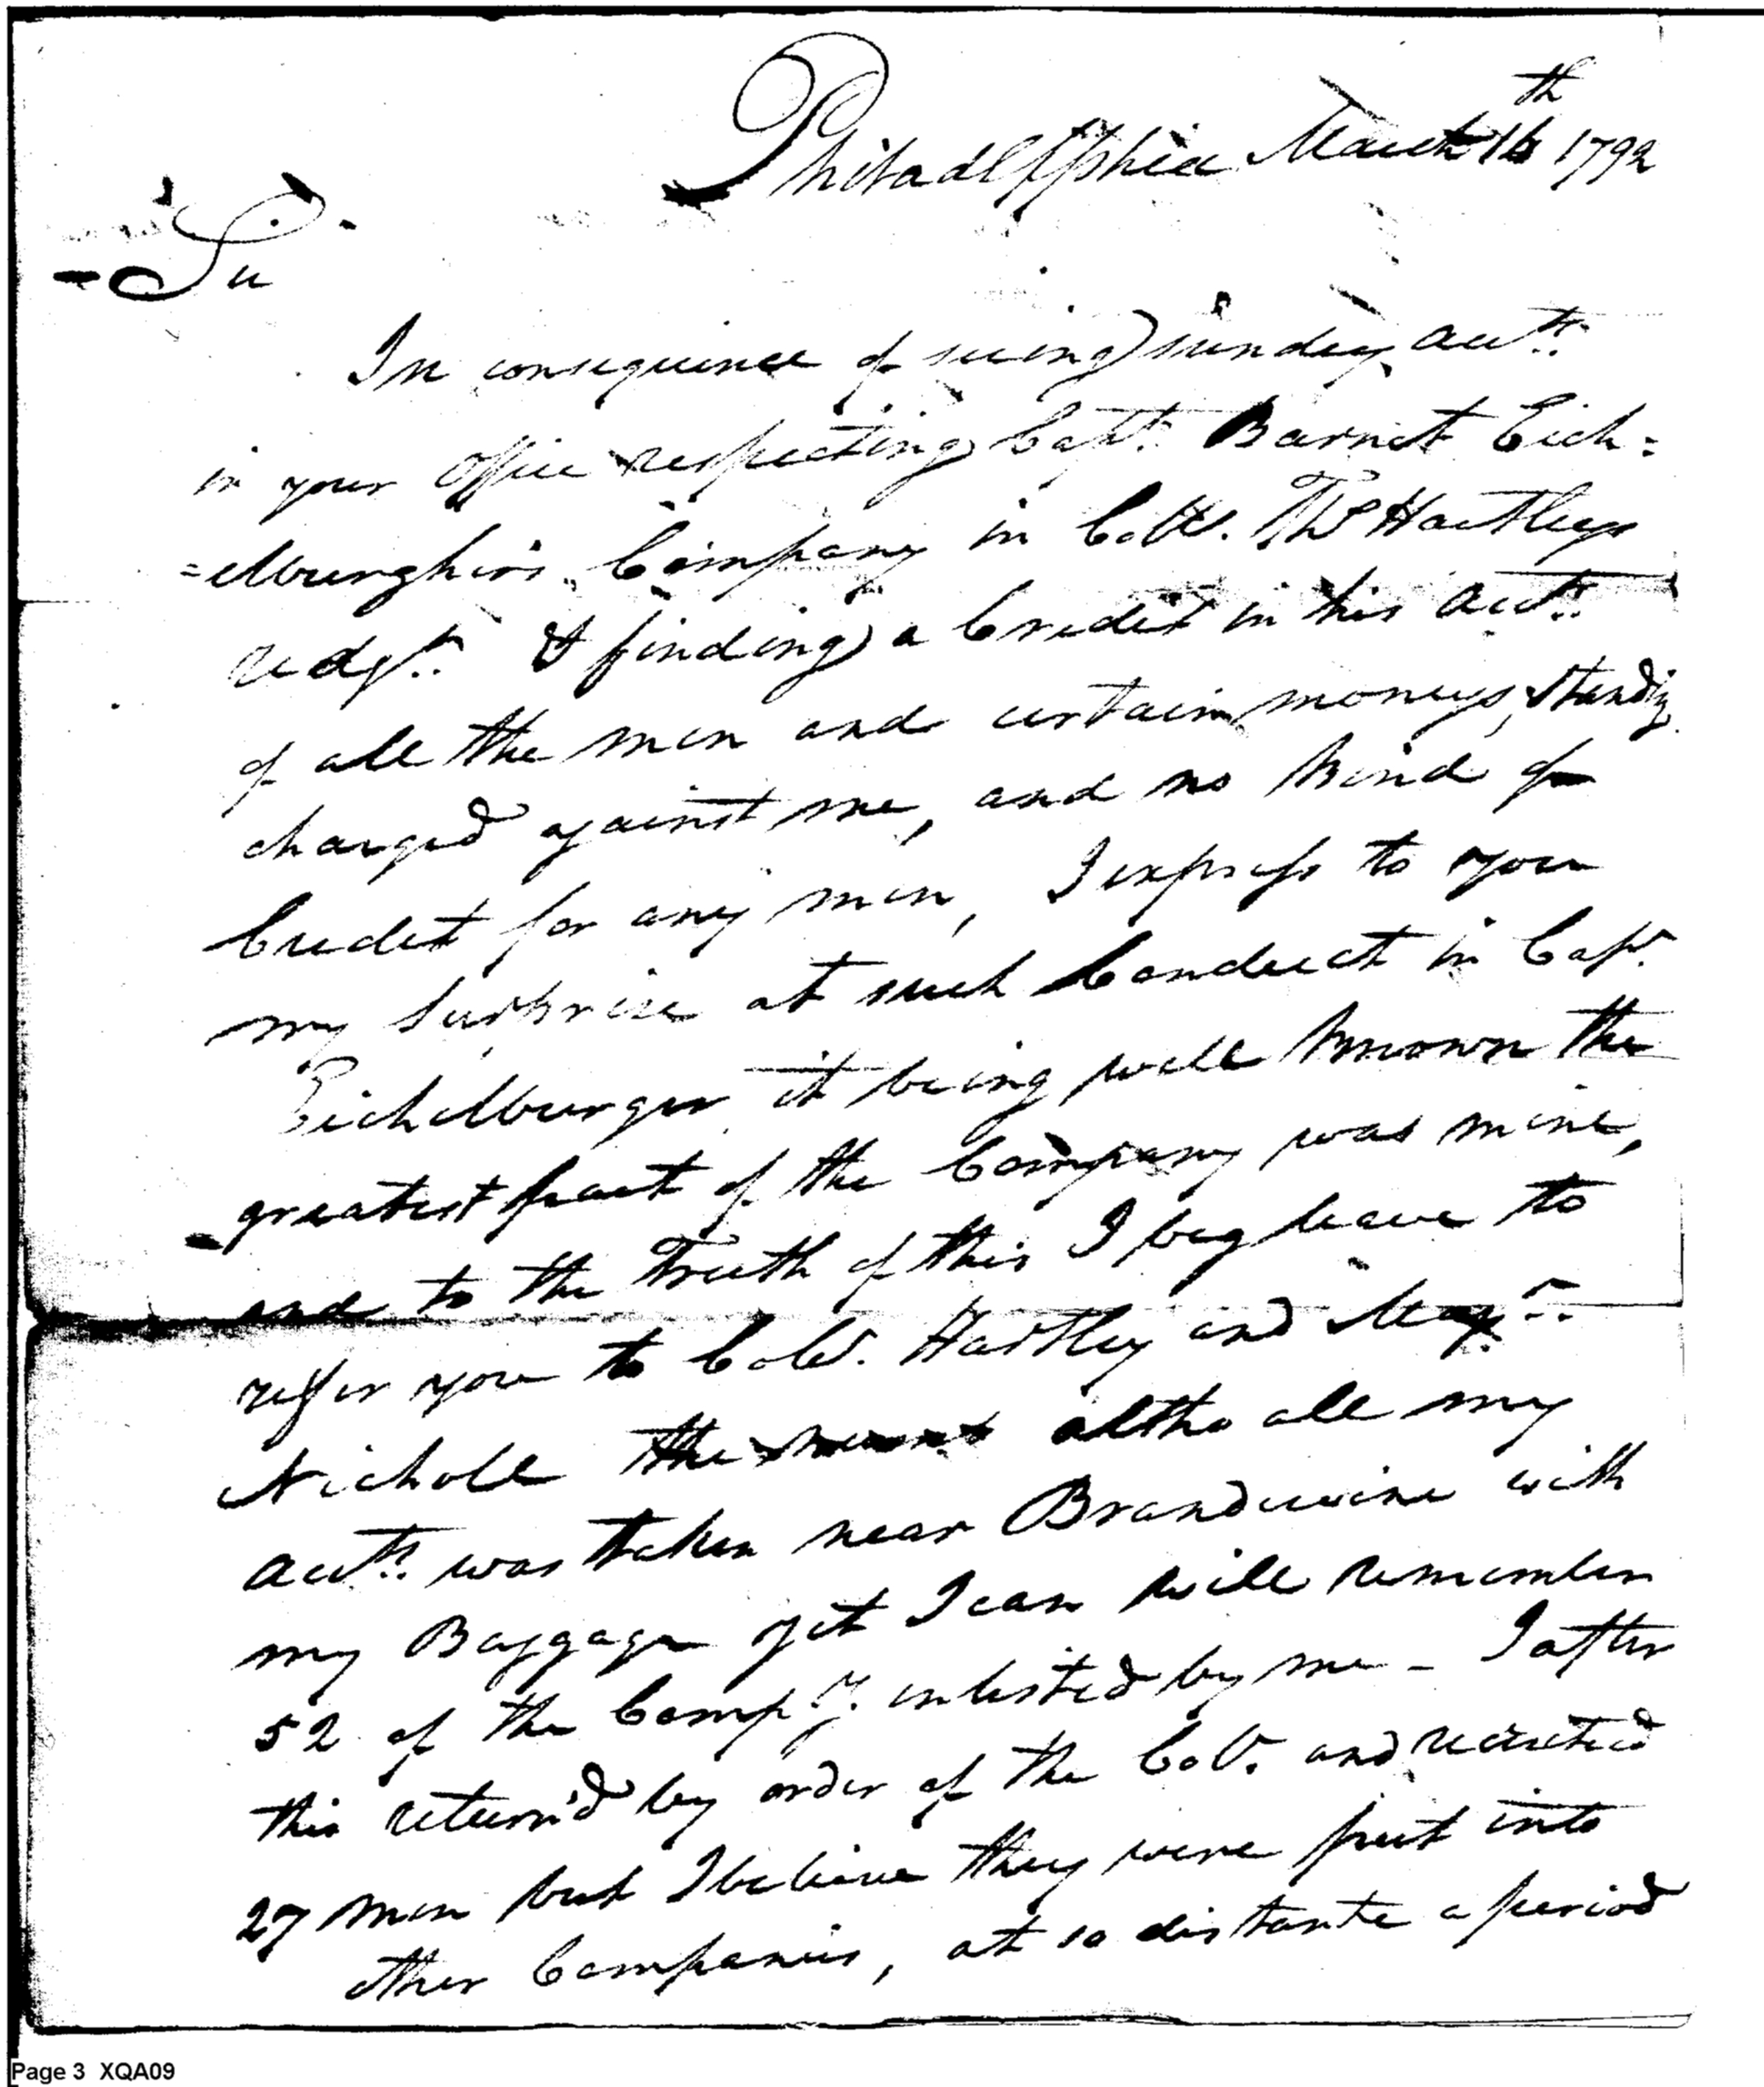 Philadelphia March 16th 1792
Sir
In consequence of seeing sunday acctts.
in your office respecting Capt. Barnet Eich=
=elburgher's Company in Coll. Ths Hartleys
Redgt. & finding a Credit in his acctt.
of all the men and certain moneys, Standig
charged against me, and no kind of
Credet for any men, I express to you
my surprise at such Conduct in Capt.
Eichelburger it being well known the
greatest part of the Company was mine,
and to the Truth of this I beg leave to
reffer you to Coll. Hartley and Majr.
Nicholl the altho all my
acctts. was taken near Brandiwine with
my Baggage yet I can well remember
52 of the Compy. inlisted by me - I after
this return'd by order of the Coll. and recruted
27 men but I believe they were put into
other Companies, at so distante a period
Page 3 XQA09